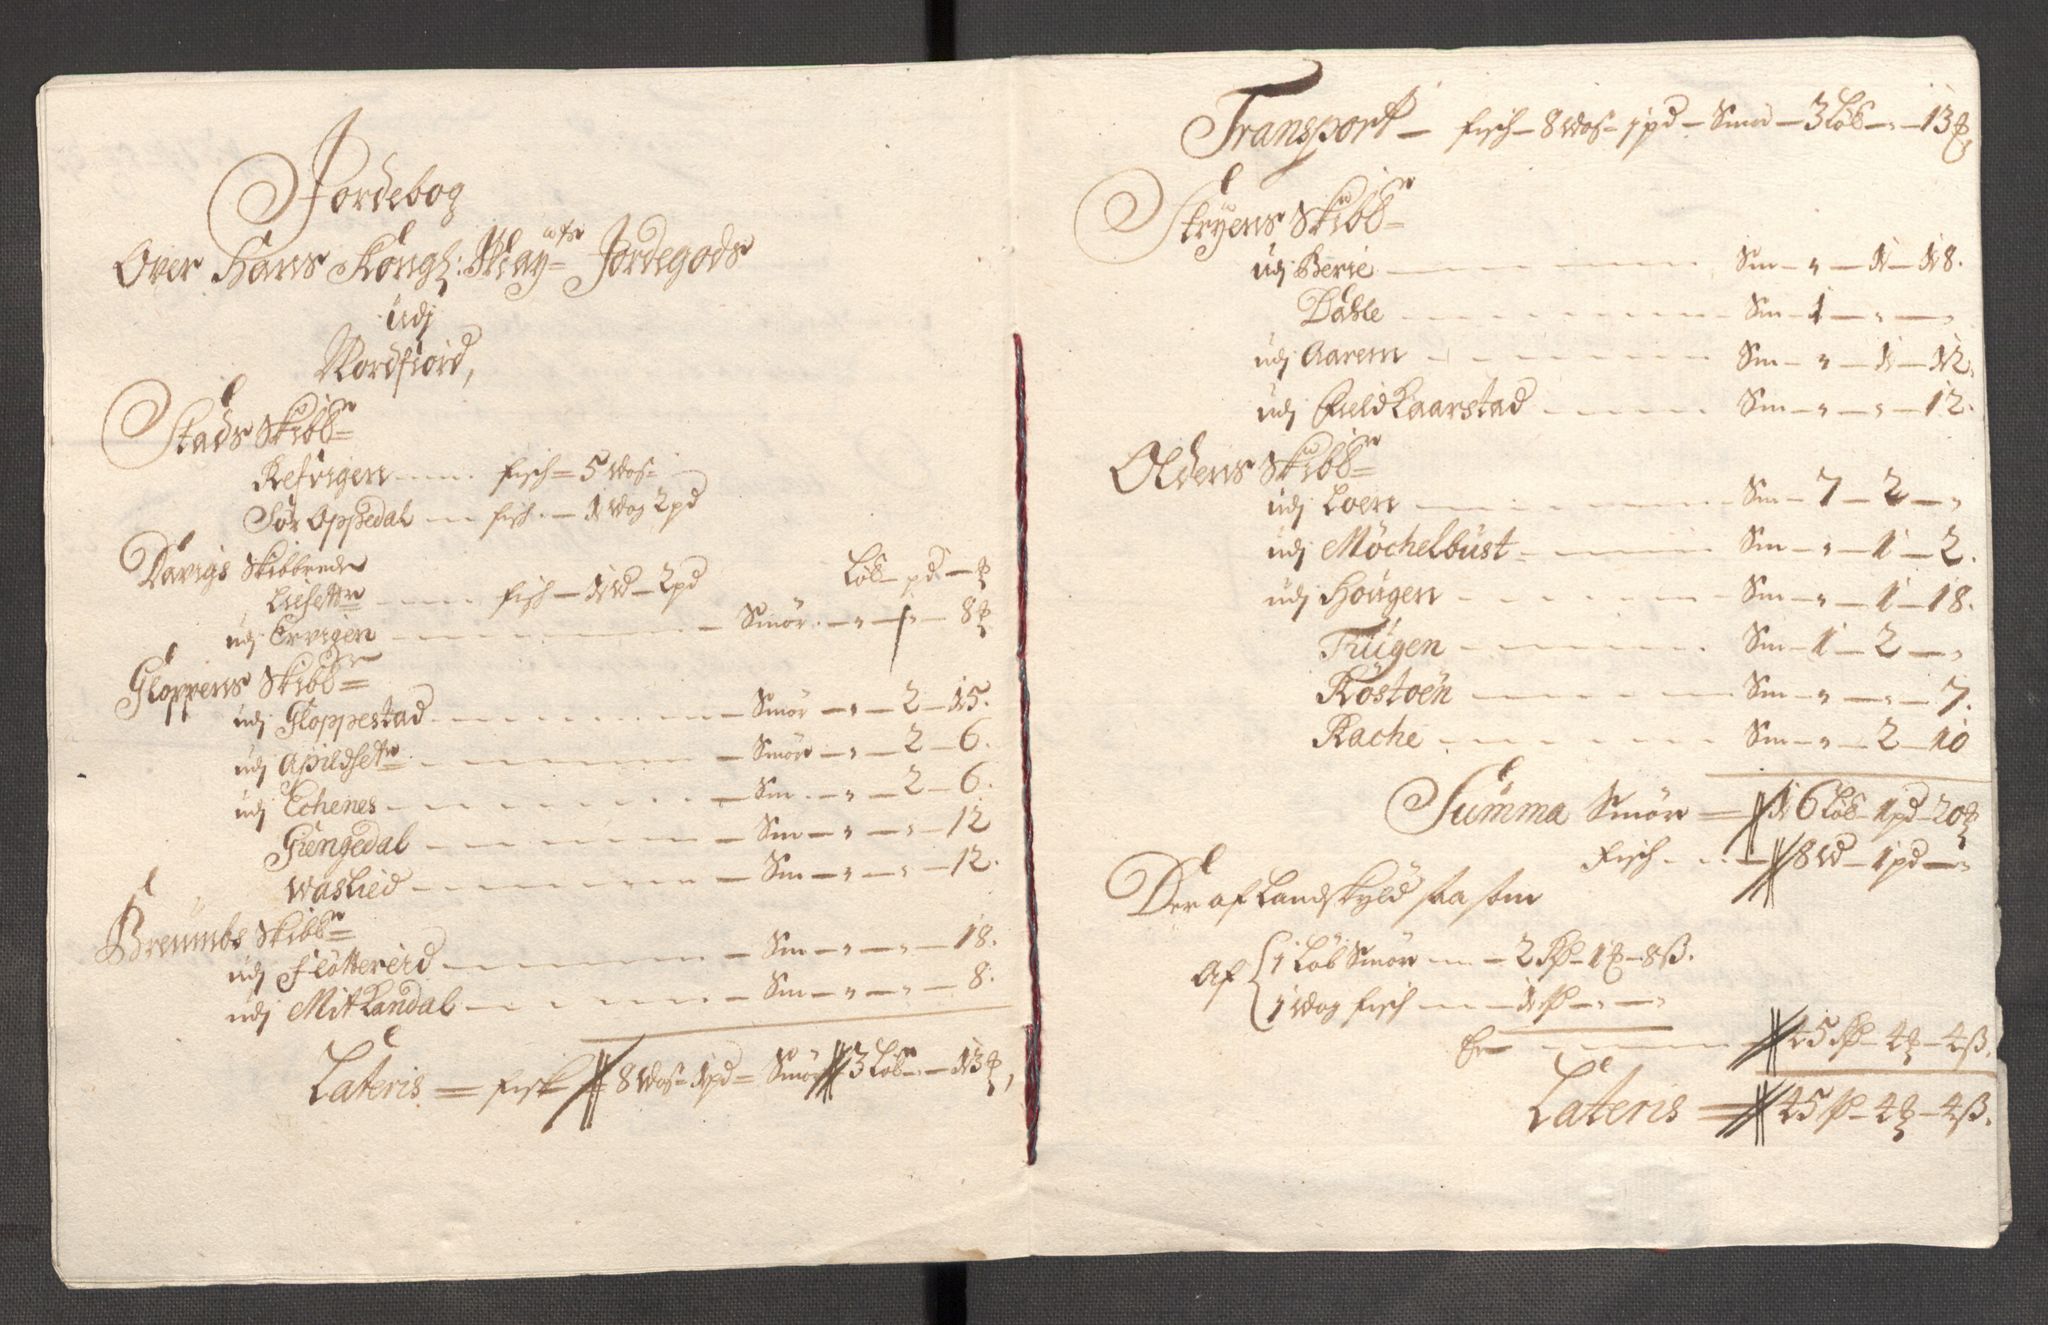 Jordebog
Over Hans Kongl: May:ts Jordegods
udj
Nordfiord,
Stads Skibb=r
Refvigen — fisch = 5 Wos=
Sør Oppedal — fisch — 1 Wog 2 pd
Davigs Skibbrede
Liset=r — fisch — 1 W — 2 pd Løb — pd — ℔
udj Ervigen — Smör — " — " — 8 ℔
Gloppens Skibb=r
udj Gloppestad — Smör — " — 2 — 15.
udj Apildset=r — Smör — " — 2 — 6.
udj Echenes — Sm — " — 2 — 6.
Giengedal — Sm — " — " — 12
Waslied — Sm — " — " — 12.
Breumbs Skibb=r
udj Flöttereid — Sm — " — " — 18.
udj Mitlandal — Sm — " — " — 8.
Lateris = fisk 8 Wos= 1 pd = Smör 3 Løb — " — 13 ℔,
Transport — fisch — 8 Wos — 1 pd — Smör — 3 Løb — " — 13 ℔
Stryens Skibb=r
udj Berie — Sm — " — 1 — 18.
Dahle — Sm — 1 — " — "
udj Aarem — Sm — " — 1 — 12.
udj Field Kaarstad — Sm — " — " — 12.
Oldens Skibb=r
udj Loen — Sm — 7 — 2 — "
udj Möchelbust — Sm — " — 1 — 2.
udj Hougen — Sm — " — 1 — 18.
Tiugen — Sm — 1 — 2 — "
Röstoen — Sm — " — " — 7.
Rache — Sm — " — 2 — 10
Summa Smör = 16 Løb — 1 pd — 20 ℔
Fisch — 8 W — 1 pd — "
Der af Landskyld saasom
Af { 1 Løb Smör — 2 Rd — 1 ℔ — 8 ß.
1 Wog fisch — 1 Rd — " — "
Er — 45 Rd — 4 ℔ — 4 ß.
Lateris = 45 Rd — 4 ℔ — 4 ß.